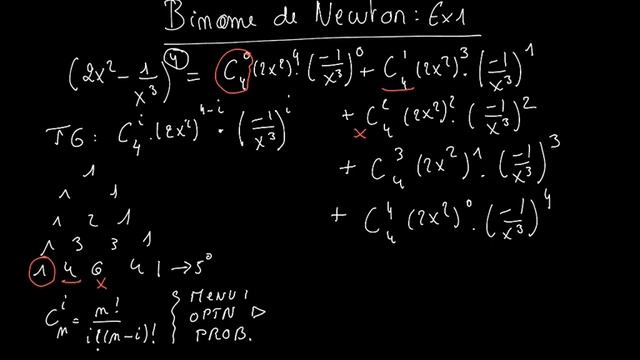 Binome de Newton : Ex1
(2x² - 1/x³)⁴ = C₄⁰ (2x²)⁴ · (-1/x³)⁰ + C₄¹ (2x²)³ · (-1/x³)¹
+ C₄² (2x²)² · (-1/x³)²
+ C₄³ (2x²)¹ · (-1/x³)³
+ C₄⁴ (2x²)⁰ · (-1/x³)⁴
TG : C₄ⁱ · (2x²)⁴⁻ⁱ · (-1/x³)ⁱ
1
1 1
1 2 1
1 3 3 1
1 4 6 4 1 → 5°
Cₙⁱ = n! / i!(n-i)!
MENU 1
OPTN ▷
PROB.